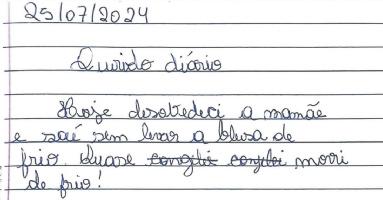 25/07/2024
Querido diário
Hoje desobedeci a mamãe
e saí sem levar a blusa de
frio. Quase morri
de frio!